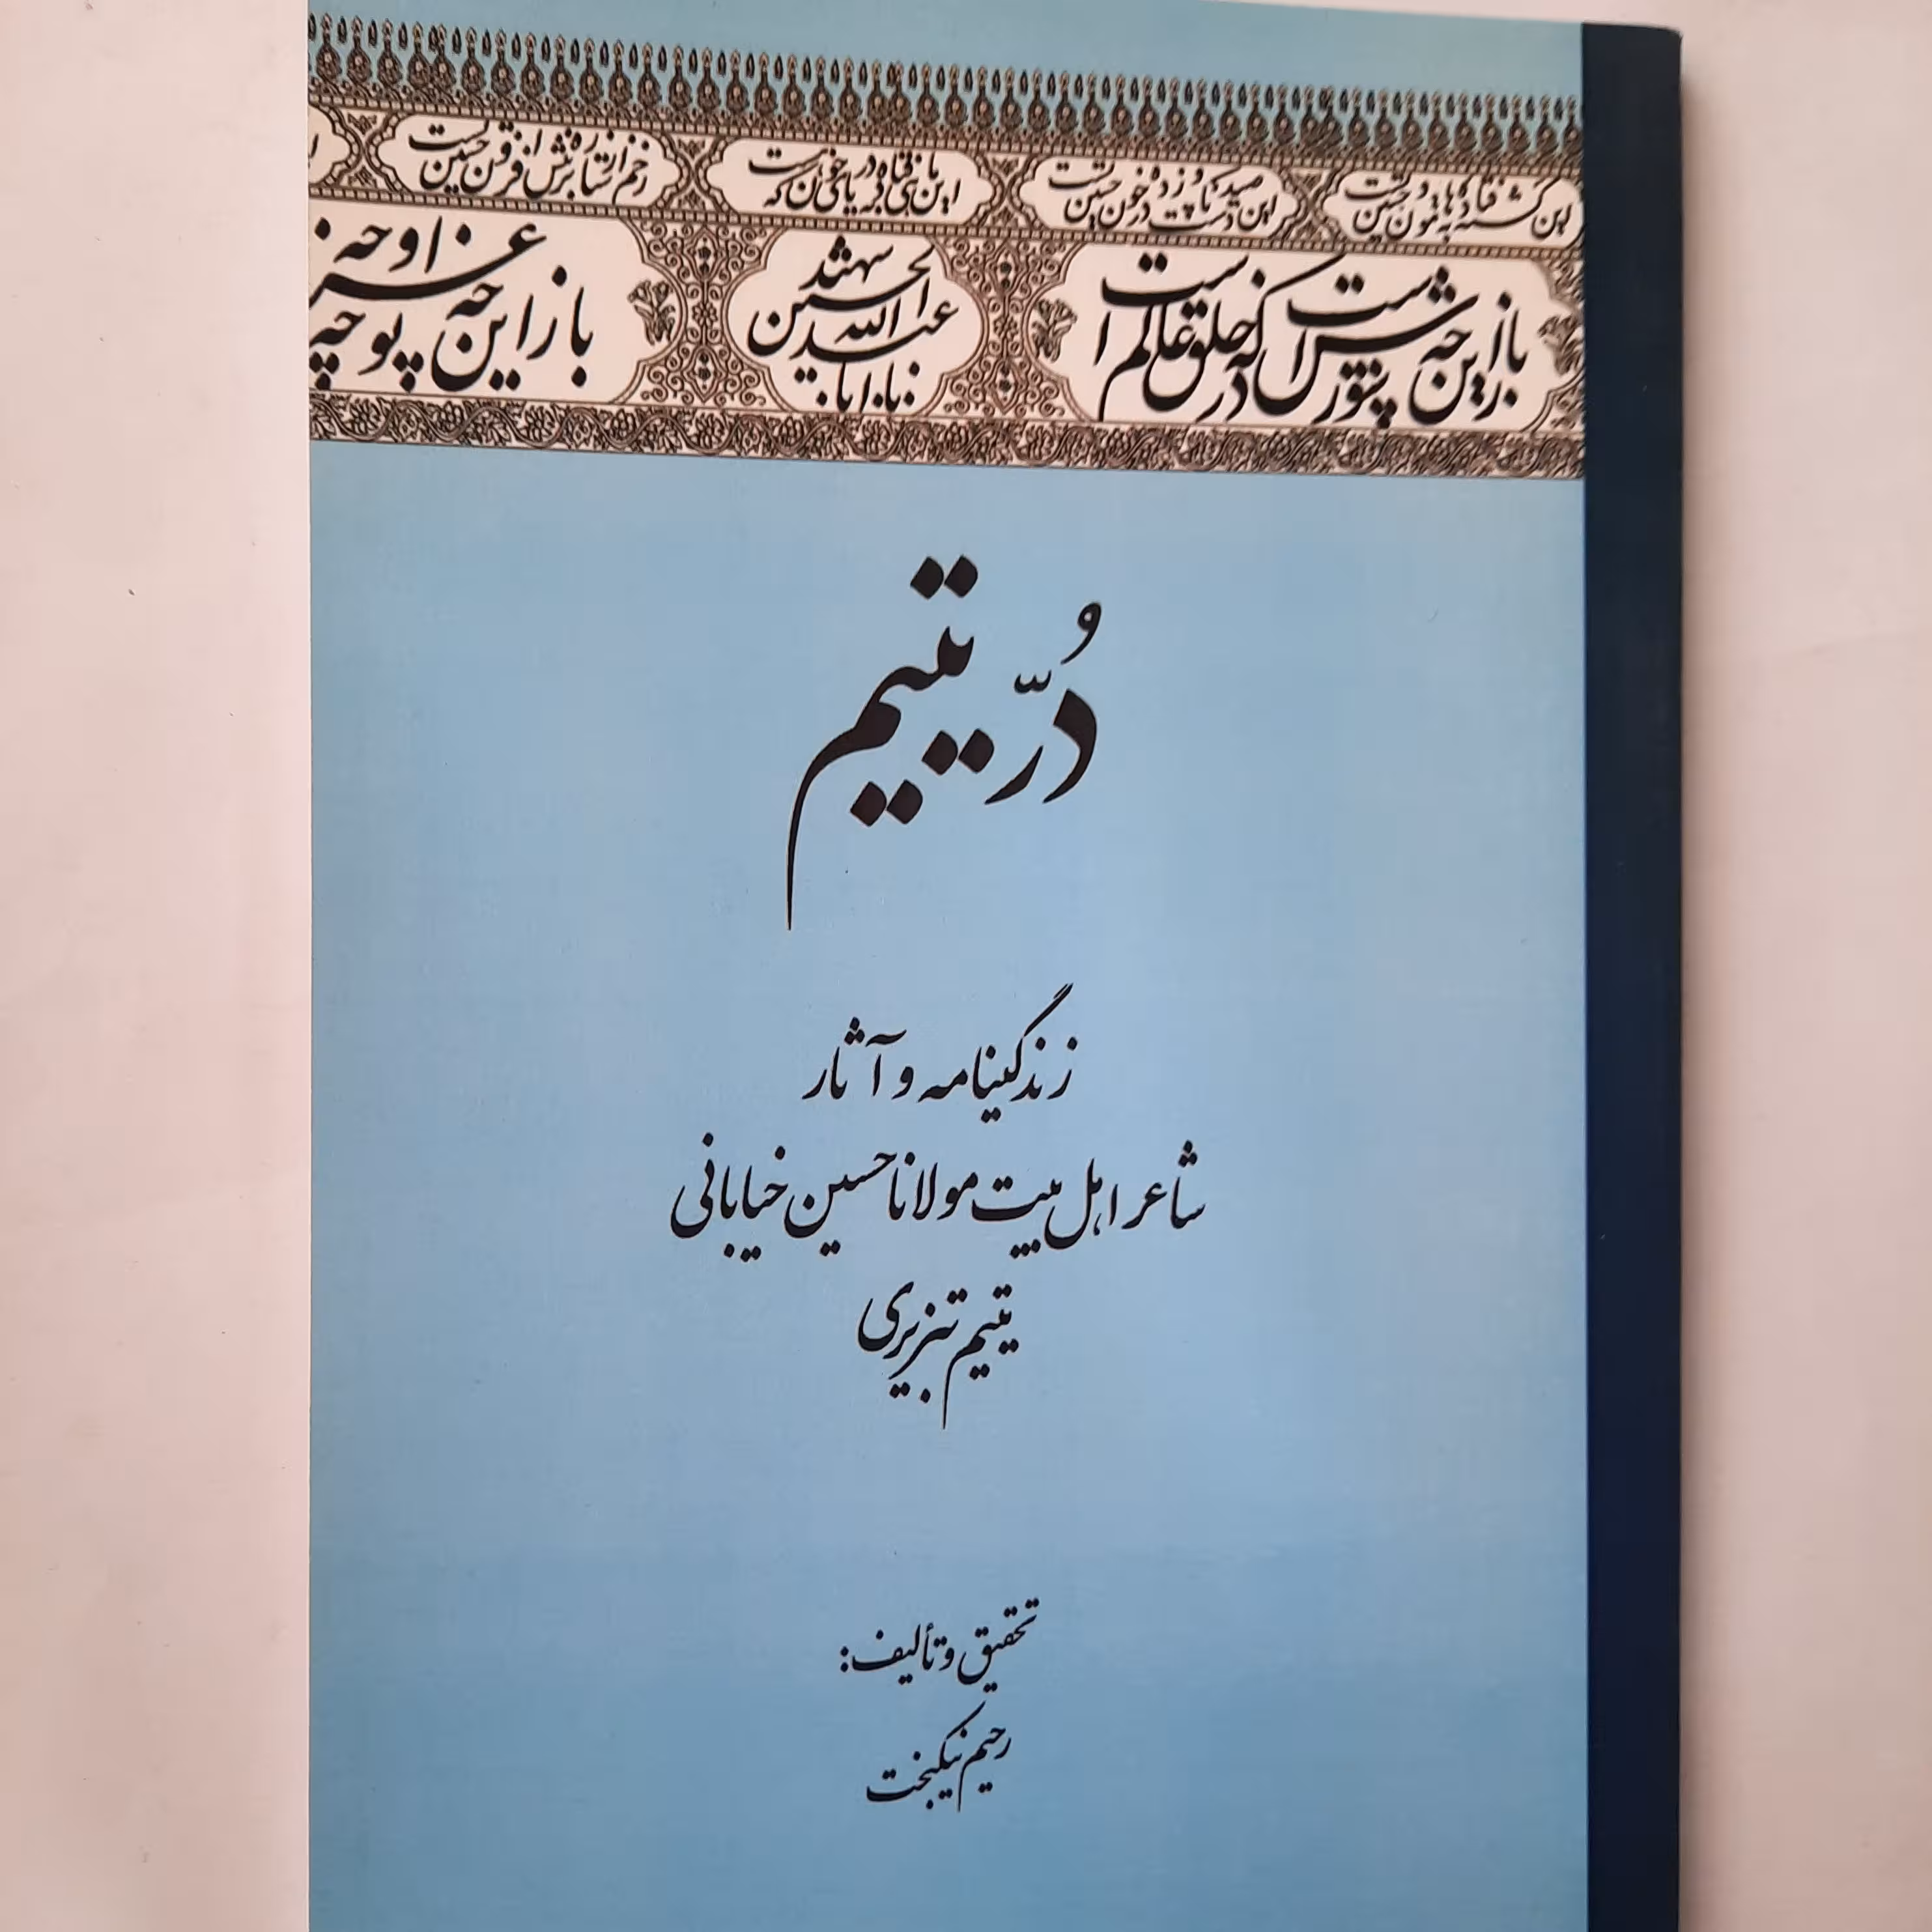 این کشته فتاده به هامون حسین تست
این صید دست و پا زده در خون حسین تست
این ماهی فتاده به دریای خون که هست
زخم از ستاره بر تنش افزون حسین تست
باز این چه شورش است که در خلق عالم است
یا اباعبدالله الحسین شهید
باز این چه نوحه و چه عزا و چه
دُرّ یتیم
زندگینامه و آثار
شاعر اهل بیت مولانا حسین خیابانی
یتیم تبریزی
تحقیق و تألیف:
رحیم نیکبخت